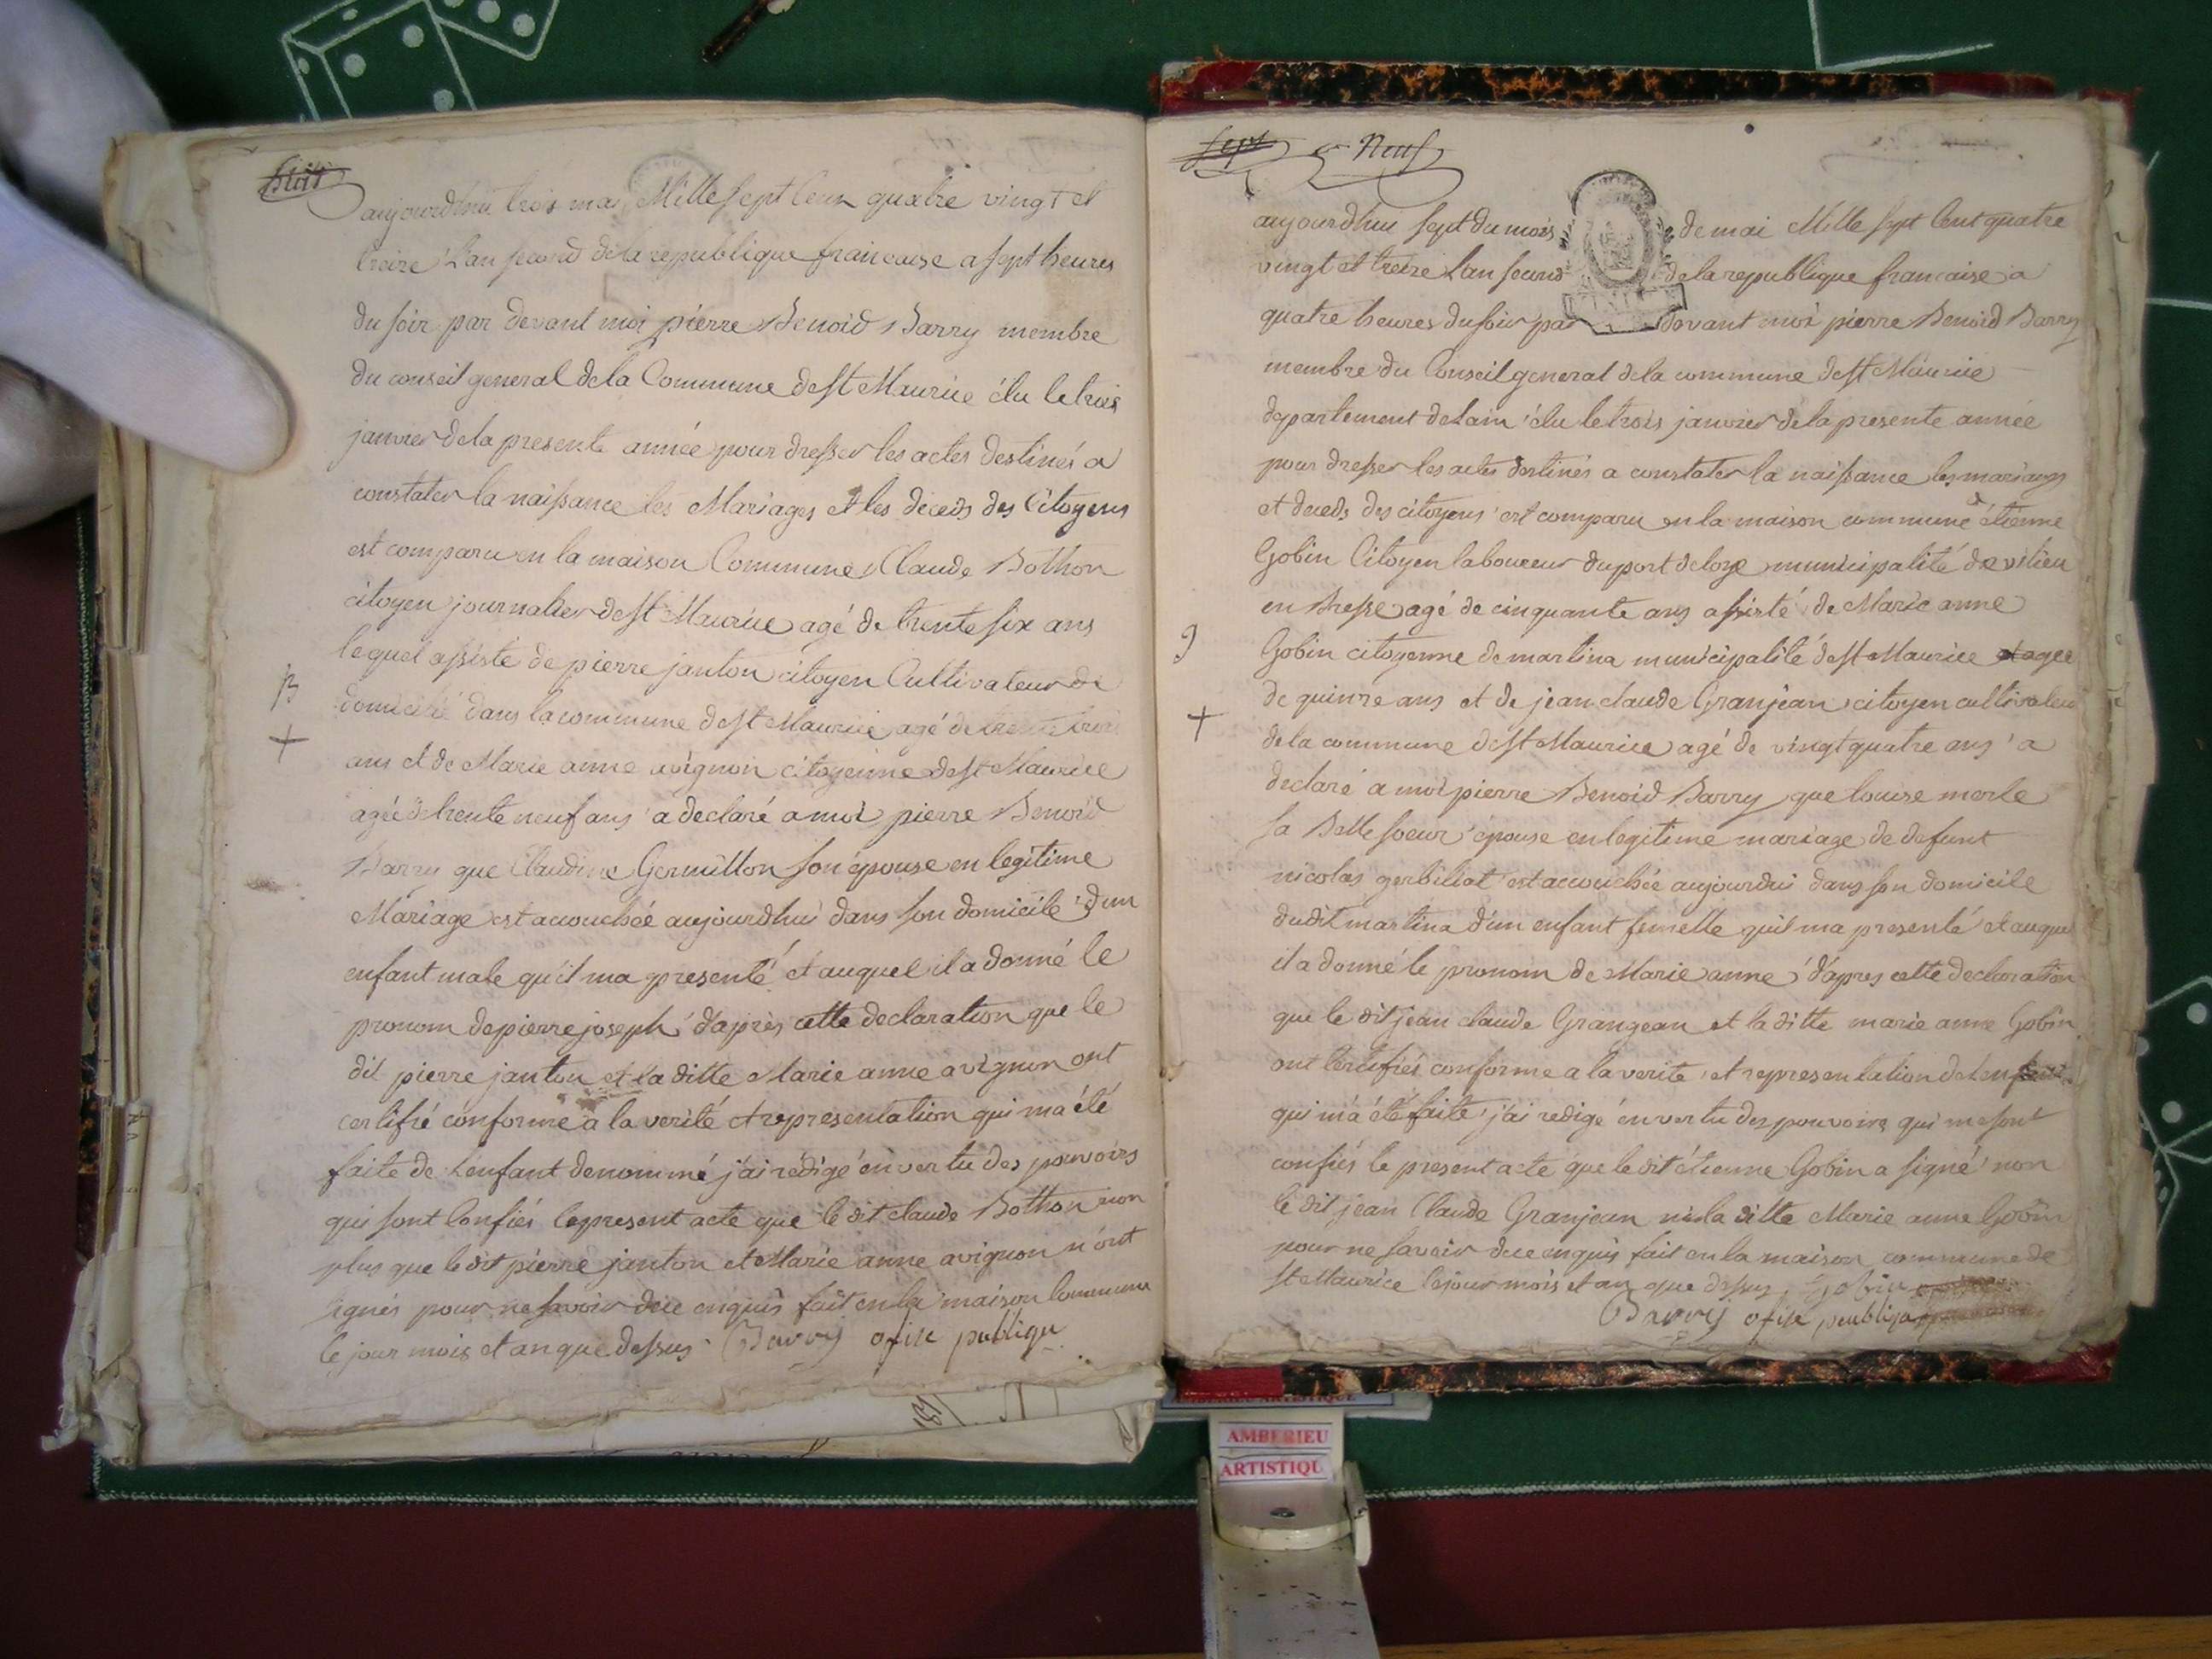 huit
aujourdhui trois mai Mille sept Cent quatre vingt et
treize L'an second de la republique francaise a sept heures
du soir par devant moi pierre Benoid Barry membre
du conseil general de la Commune de St Maurice élu le trois
janvier de la presente année pour dresser les actes destinés a
constater la naissance les Mariages et les deceds des Citoyens
est comparu en la maison Commune Claude Bothon
citoyen journalier de St Maurice agé de trente six ans
lequel assisté de pierre janton citoyen Cultivateur de
domicilié dans la commune de St Maurice agé de trente trois
ans et de Marie anne avignon citoyenne de St Maurice
agée de trente neuf ans a declaré a moi pierre Benoid
Barry que Claudine Germillon son épouse en legitime
Mariage est accouchée aujourdhui dans son domicile d'un
enfant male qu'il ma presenté et auquel il a donné le
pronom de pierre joseph d'après cette declaration que le
dit pierre janton et la ditte Marie anne avignon ont
certifié conforme a la verité et representation qui ma été
faite de L'enfant denommé j'ai rédigé en vertu des pouvoirs
qui sont Confiés le present acte que le dit claude Bothon non
plus que le dit pierre janton et Marie anne avignon n'ont
signés pour ne savoir de ce enquis fait en la maison Commune
le jour mois et an que dessus Barry ofise publiqu
sept Neuf
aujourdhui sept du mois de mai Mille sept Cent quatre
vingt et treize Lan second de la republique francaise a
quatre heures du soir par devant moi pierre Benoid Barry
membre du Conseil general de la commune de St Maurice
departement de Lain élu le trois janvier de la presente année
pour dresser les actes destinés a constater la naissance les mariages
et deceds des citoyens est comparu en la maison commune étienne
Gobin Citoyen laboureur du port de loye municipalité de vilieu
en Bresse agé de cinquante ans assisté de Marie anne
9 Gobin citoyenne de martina municipalité de St Maurice agée
de quinze ans et de jean claude Granjean citoyen cultivateur
de la commune de St Maurice agé de vingt quatre ans a
declaré a moi pierre Benoid Barry que louise merle
sa Belle soeur épouse en legitime mariage de defunt
nicolas gerbeliat est accouchée aujourdui dans son domicile
dudit martina d'un enfant femelle quil ma presenté et auquel
il a donné le pronom de Marie anne d'apres cette declaration
que le dit jean claude Grangean et la ditte marie anne Gobin
ont Certifiés conforme a la verite et representation de Lenfant
qui m'a été faite j'ai redigé en vertu des pouvoirs qui me sont
confiés le present acte que le dit étienne Gobin a signé non
le dit jean Claude Granjean ni la ditte Marie anne Gobin
pour ne savoir de ce enquis fait en la maison commune de
St Maurice le jour mois et an que dessus Gobin
Barry ofise publiqu
AMBERIEU
ARTISTIQU